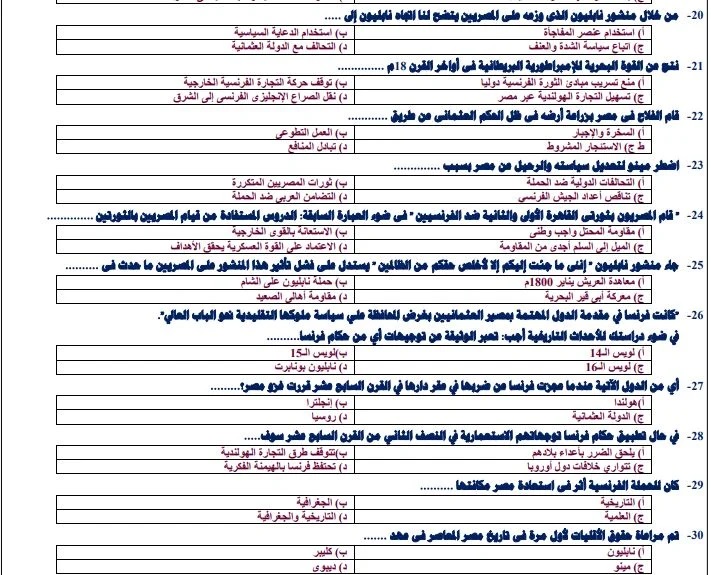 20- من خلال منشور نابليون الذى وزعه على المصريين يتضح لنا اتجاه نابليون إلى .....
أ) استخدام عنصر المفاجأة ب) استخدام الدعاية السياسية
ج) اتباع سياسة الشدة والعنف د) التحالف مع الدولة العثمانية
21- نتج عن القوة البحرية للإمبراطورية البريطانية فى أواخر القرن 18م .............
أ) منع تسريب مبادئ الثورة الفرنسية دوليا ب) توقف حركة التجارة الفرنسية الخارجية
ج) تسهيل التجارة الهولندية عبر مصر د) نقل الصراع الإنجليزى الفرنسى إلى الشرق
22- قام الفلاح فى مصر بزراعة أرضه فى ظل الحكم العثمانى عن طريق ...........
أ) السخرة والإجبار ب) العمل التطوعى
ط ج) الاستنجار المشروط د) تبادل المنافع
23- اضطر مينو لتعديل سياسته والرحيل عن مصر بسبب ..............
أ) التحالفات الدولية ضد الحملة ب) ثورات المصريين المتكررة
ج) تناقص أعداد الجيش الفرنسي د) التضامن العربى ضد الحملة
24- " قام المصريون بثورتى القاهرة الأولى والثانية ضد الفرنسيين " فى ضوء العبارة السابقة: الدروس المستفادة من قيام المصريين بالثورتين ..............
أ) مقاومة المحتل واجب وطنى ب) الاستعانة بالقوى الخارجية
ج) الميل إلى السلم أجدى من المقاومة د) الاعتماد على القوة العسكرية يحقق الأهداف
25- جاء منشور نابليون " إننى ما جئت إليكم إلا لأخلص حقكم من الظالمين " يستدل على فشل تأثير هذا المنشور على المصريين ما حدث فى ..........
أ) معاهدة العريش يناير 1800م ب) حملة نابليون على الشام
ج) معركة أبى قير البحرية د) مقاومة أهالى الصعيد
26- "كانت فرنسا في مقدمة الدول المهتمة بمصير العثمانيين بغرض المحافظة علي سياسة ملوكها التقليدية نحو الباب العالي".
في ضوء دراستك للأحداث التاريخية أجب: تعبر الوثيقة عن توجيهات أي من حكام فرنسا..........
أ) لويس الـ14 ب)لويس الـ15
ج) لويس الـ16 د) نابليون بونابرت
27- أي من الدول الآتية عندما عجزت فرنسا عن ضربها في عقر دارها في القرن السابع عشر قررت غزو مصر؟.........
أ)هولندا ب) إنجلترا
ج) الدولة العثمانية د) روسيا
28- في حال تطبيق حكام فرنسا توجهاتهم الاستعمارية في النصف الثاني من القرن السابع عشر سوف.....
أ) يلحق الضرر بأعداء بلادهم ب)تتوقف طرق التجارة الهولندية
ج) تتواري خلافات دول أوروبا د) تحتفظ فرنسا بالهيمنة الفكرية
29- كان للحملة الفرنسية أثر فى استعادة مصر مكانتها ..........
أ) التاريخية ب) الجغرافية
ج) العلمية د) التاريخية والجغرافية
30- تم مراعاة حقوق الأقليات لأول مرة فى تاريخ مصر المعاصر فى عهد .......
أ) نابليون ب) كليبر
ج) مينو د) ديبوى